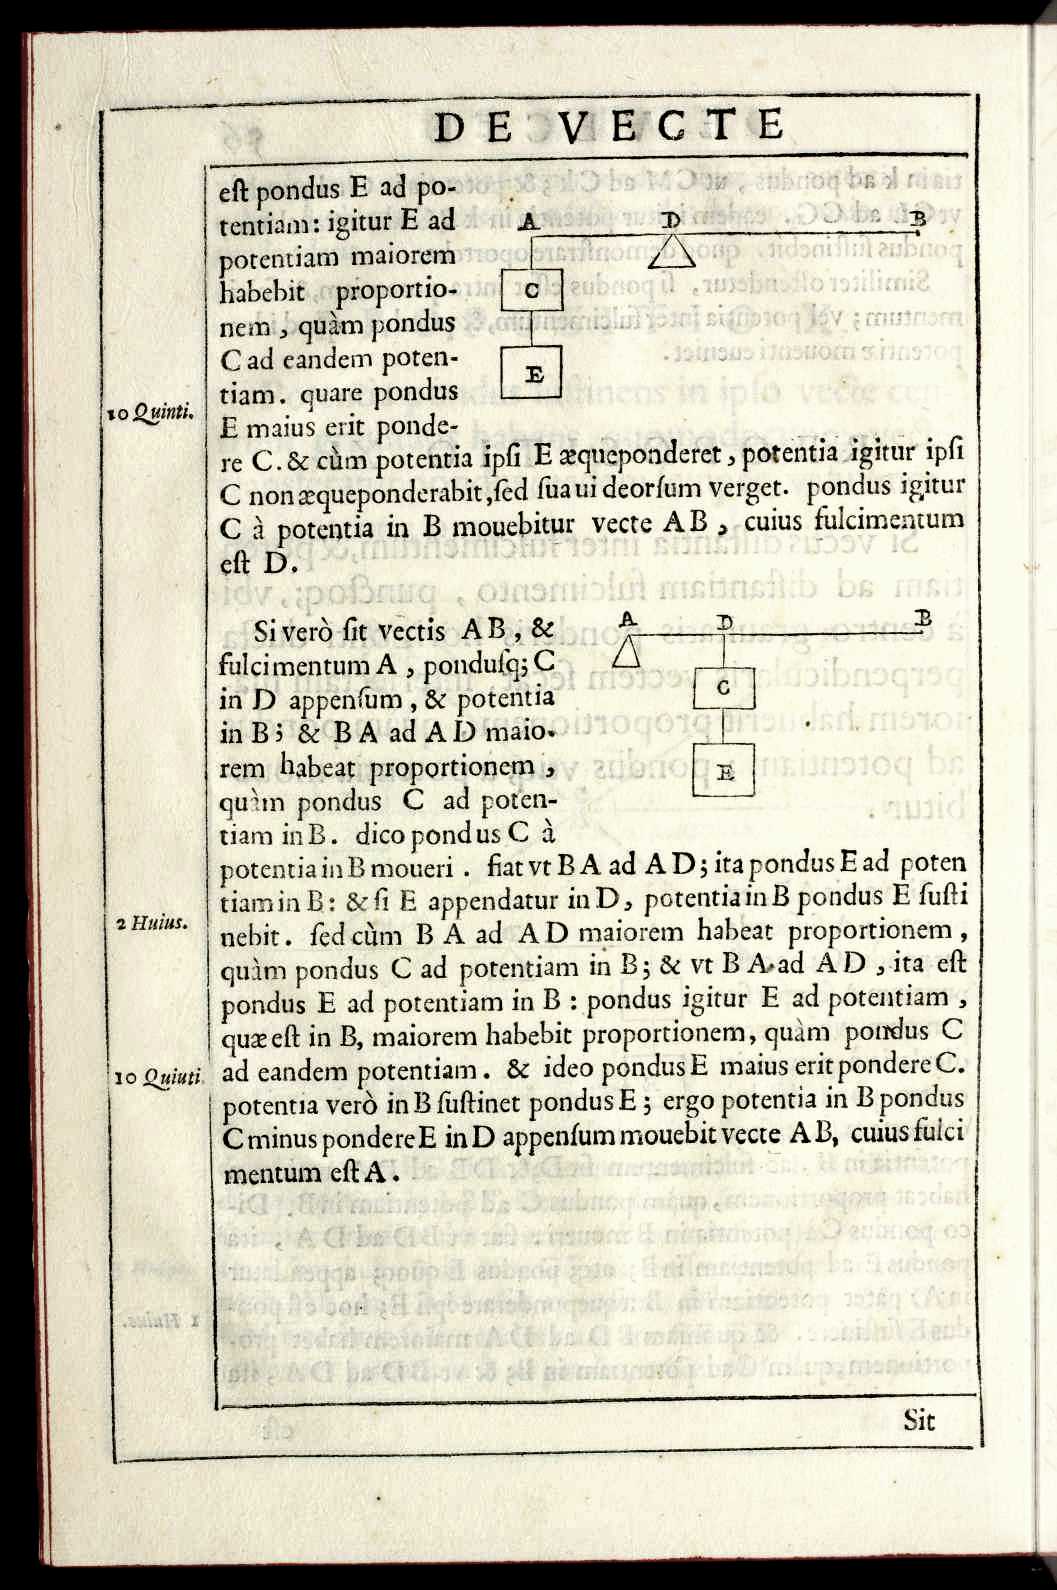 DE VECTE
eſt pondus E ad po-
tentiam: igitur E ad
potentiam maiorem
habebit proportio-
nem, quàm pondus
C ad eandem poten-
tiam. quare pondus
10 Quinti.
E maius erit ponde-
A D B
C
E
re C. & cùm potentia ipſi E æqueponderet, potentia igitur ipſi
C non æqueponderabit, ſed ſua ui deorſum verget. pondus igitur
C à potentia in B mouebitur vecte AB, cuius fulcimentum
eſt D.
Si verò ſit vectis AB, &
fulcimentum A, ponduſq; C
in D appenſum, & potentia
in B; & BA ad AD maio-
rem habeat proportionem,
quàm pondus C ad poten-
tiam in B. dico pondus C à
A D B
C
E
potentia in B moueri. fiat vt BA ad AD; ita pondus E ad poten
tiam in B: & ſi E appendatur in D, potentia in B pondus E ſuſti
2 Huius.
nebit. ſed cùm BA ad AD maiorem habeat proportionem,
quàm pondus C ad potentiam in B; & vt BA ad AD, ita eſt
pondus E ad potentiam in B: pondus igitur E ad potentiam,
quæ eſt in B, maiorem habebit proportionem, quàm pondus C
10 Quiuti.
ad eandem potentiam. & ideo pondus E maius erit pondere C.
potentia verò in B ſuſtinet pondus E; ergo potentia in B pondus
C minus pondere E in D appenſum mouebit vecte AB, cuius fulci
mentum eſt A.
Sit